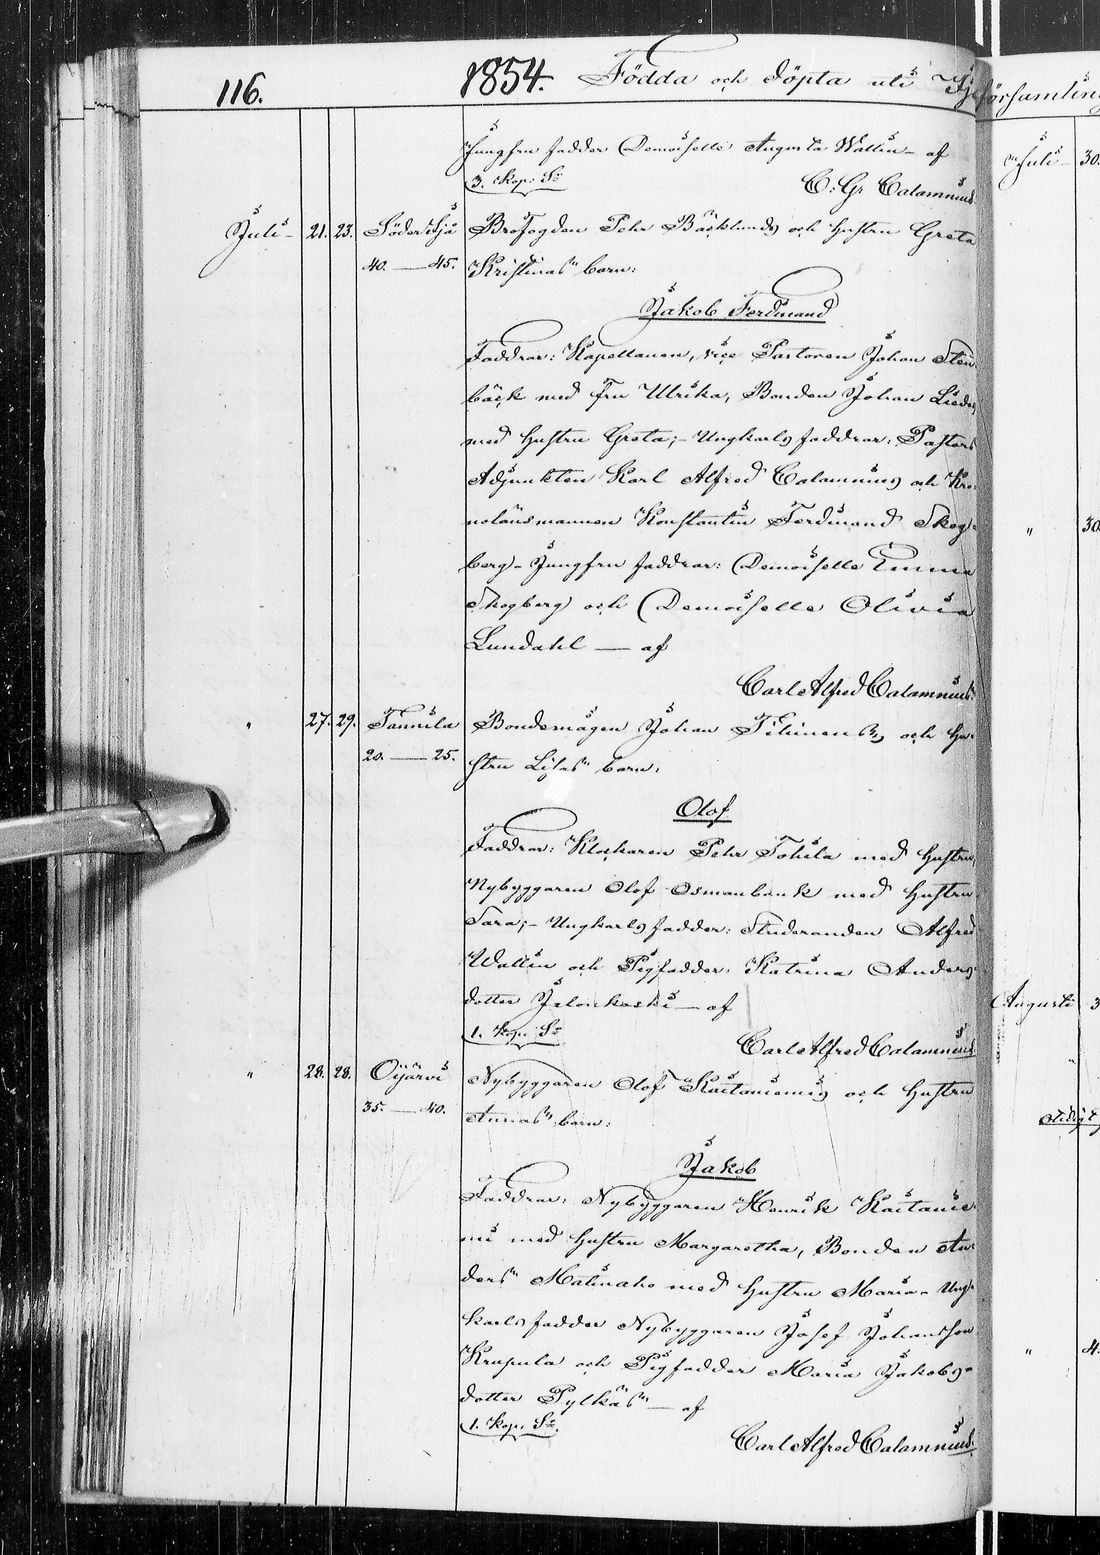 116.
1854. Födda och döpta uti
Jungfru fadder Demoiselle Augusta Wallin – af
3. Kop. Sr
C: G: Calamnius
Juli – 21. 23. Brofogden Pehr Bäcklunds och hustru Greta
40. — 45. Kristinas barn:
Jakob Ferdinand
Faddrar: Kapellanen, vice Pastoren Johan Sten
bäck med fru Ulrika, Bonden Johan
med hustru Greta; – Ungkarls faddrar: Pastors
Adjunkten Karl Alfred Calamnius och Kro-
nolänsmannen Konstantin Ferdinand Skog-
berg – Jungfru faddrar: Demoiselle Emma
Skogberg och Demoiselle Olivia
Lundahl — af
Carl Alfred Calamnius.
" 27. 29. Tannila Bondemågen Johan och hu-
20. — 25. stru Lisas barn:
Olof
Faddrar: Klockaren Pehr Tokila med hustru,
Nybyggaren Olof med hustru
Sara; – Ungkarls fadder: Studeranden Alfred
Wallin och Pigfadder: Katrina Anders-
dotter – af
1. Kop. Sr
Carl Alfred Calamnius
" 28. 28. Oijärvi Nybyggaren Olof Kaitaniemis och hustru
35. — 40. Annas barn:
Jakob
Faddrar: Nybyggaren Henrik Kaitanie-
mi med hustru Margaretha, Bonden An-
ders Matinaho med hustru Maria – Ung-
karls fadder Nybyggaren Josef Johansson
Krupula och Pigfadder Maria Jakobs-
dotter Pylkäs — af
1. Kop. Sr.
Carl Alfred Calamnius.
församling
Juli – 30.
" 30.
Augusti 3
" 4.